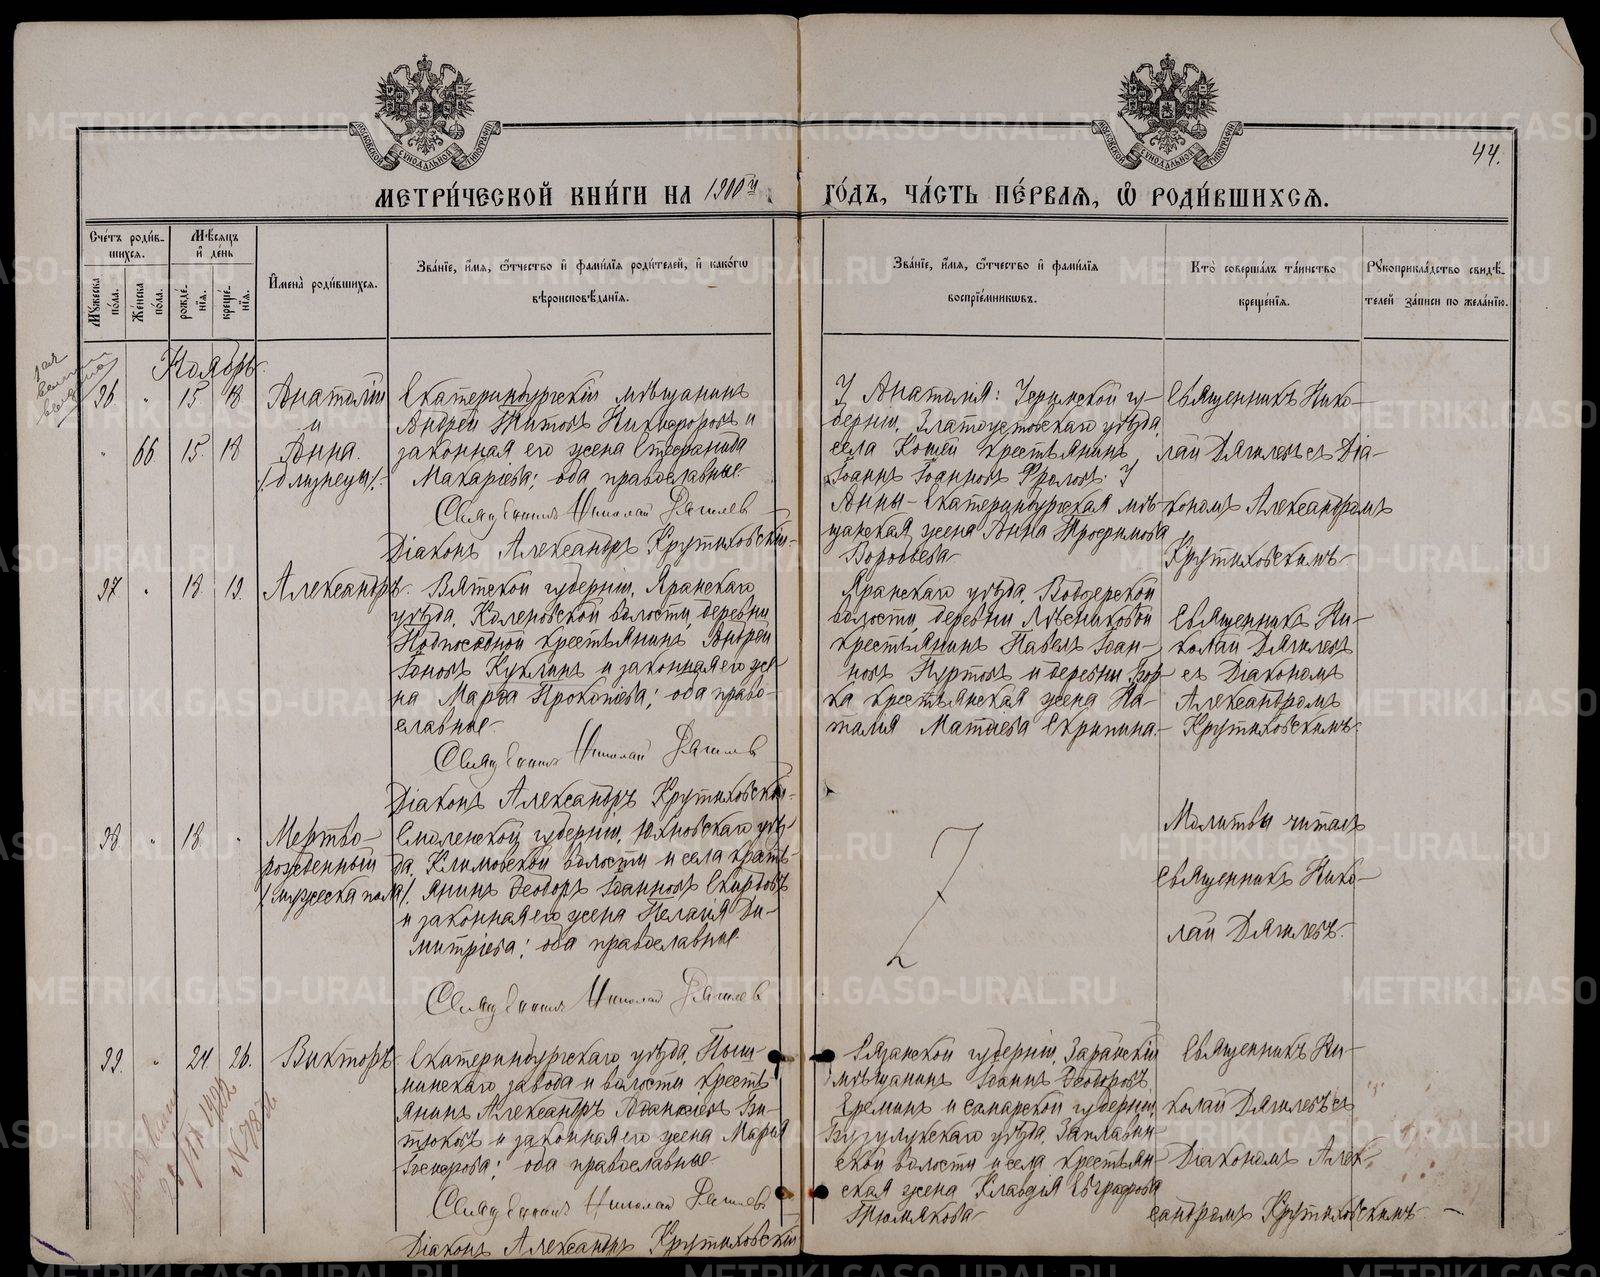 МОСКОВСКОЙ СУНОДАЛЬНОЙ ТИПОГРАФІИ
МОСКОВСКОЙ СУНОДАЛЬНОЙ ТИПОГРАФІИ
44.
МЕТРИ́ЧЕСКОЙ КНИ́ГИ НА 1900й
ГО́ДЪ, ЧА́СТЬ ПЕ́РВАѦ, Ѽ РОДИ́ВШИХСѦ.
Сче́тъ роди́в-
шихсѧ.
Мꙋ́жеска по́ла.
Же́нска по́ла.
Мѣ́сѧцъ
и҆ де́нь
рожде́-нїѧ.
креще́-нїѧ.
И҆мена̀ роди́вшихсѧ.
Зва́нїе, и҆́мѧ, ѻ҆́тчество и҆ фами́лїѧ роди́телей, и҆ како́гѡ
вѣроисповѣ́данїѧ.
Зва́нїе, и҆́мѧ, ѻ҆́тчество и҆ фами́лїѧ
воспрїе́мникѡвъ.
Кто̀ соверша́лъ та́инство
креще́нїѧ.
Рꙋкоприкла́дство свидѣ́-
телей за́писи по жела́нїю.
Ноябрь.
96 " 15 18 Анатолій
и
" 66 15. 18 Анна.
/близнецы/.
Екатеринбургскій мѣщанинъ
Андрей Титовъ Никифоровъ и
законная его жена Стефанида
Макаріева; оба православные.
Священникъ Николай Дягилев
Діаконъ Александръ Крутиховскій.
У Анатолія: Уфимской гу-
берніи, Златоустовскаго уѣзда,
села крестьянинъ
Іоаннъ Іоанновъ Фроловъ. У
Анны - Екатеринбургская мѣ-
щанская жена Анна Трофимова
Воробьева.
Священникъ Нико-
лай Дягилевъ съ Діа-
кономъ Александромъ
Крутиховскимъ.
97 " 18 19. Александръ.
Вятской губерніи, Яранскаго
уѣзда, волости, деревни
крестьянинъ Андрей
Іоновъ Куклинъ и законная его же-
на Марѳа Прокопіева; оба право-
славные.
Священникъ Николай Дягилев
Діаконъ Александръ Крутиховскій.
Яранскаго уѣзда,
волости, деревни Мѣсниковой
крестьянинъ Павелъ Іоан-
новъ и деревни
крестьянская жена На-
талія Матѳіева Скрипина.
Священникъ Ни-
колай Дягилевъ
съ Діакономъ
Александромъ
Крутиховскимъ.
98 " 18. " Мертво-
рожденный
/мужеска пола/.
Смоленской губерніи, Юхновскаго уѣз-
да, Климовской волости и села кресть-
янинъ Ѳеодоръ Іоанновъ
и законная его жена Пелагія Ди-
митріева; оба православные.
Священникъ Николай Дягилев
Молитвы читалъ
Священникъ Нико-
лай Дягилевъ.
99. " 24 26. Викторъ
Екатеринбургскаго уѣзда, Пыш-
минскаго завода и волости кресть-
янинъ Александръ Би-
тюковъ и законная его жена Марія
Іосифова; оба православные.
Священникъ Николай Дягилев
Діаконъ Александръ Крутиховскій
Рязанской губерніи, Зарайскій
мѣщанинъ Іоаннъ Ѳеодоровъ
Ереминъ и Самарской губерніи,
Бузулукскаго уѣзда, Заплавин-
ской волости и села крестьян-
ская жена Клавдія Евграфова
Тюмякова.
Священникъ Ни-
колай Дягилевъ съ
Діакономъ Алек-
сандромъ Крутиховскимъ.
METRIKI.GASO-URAL.RU